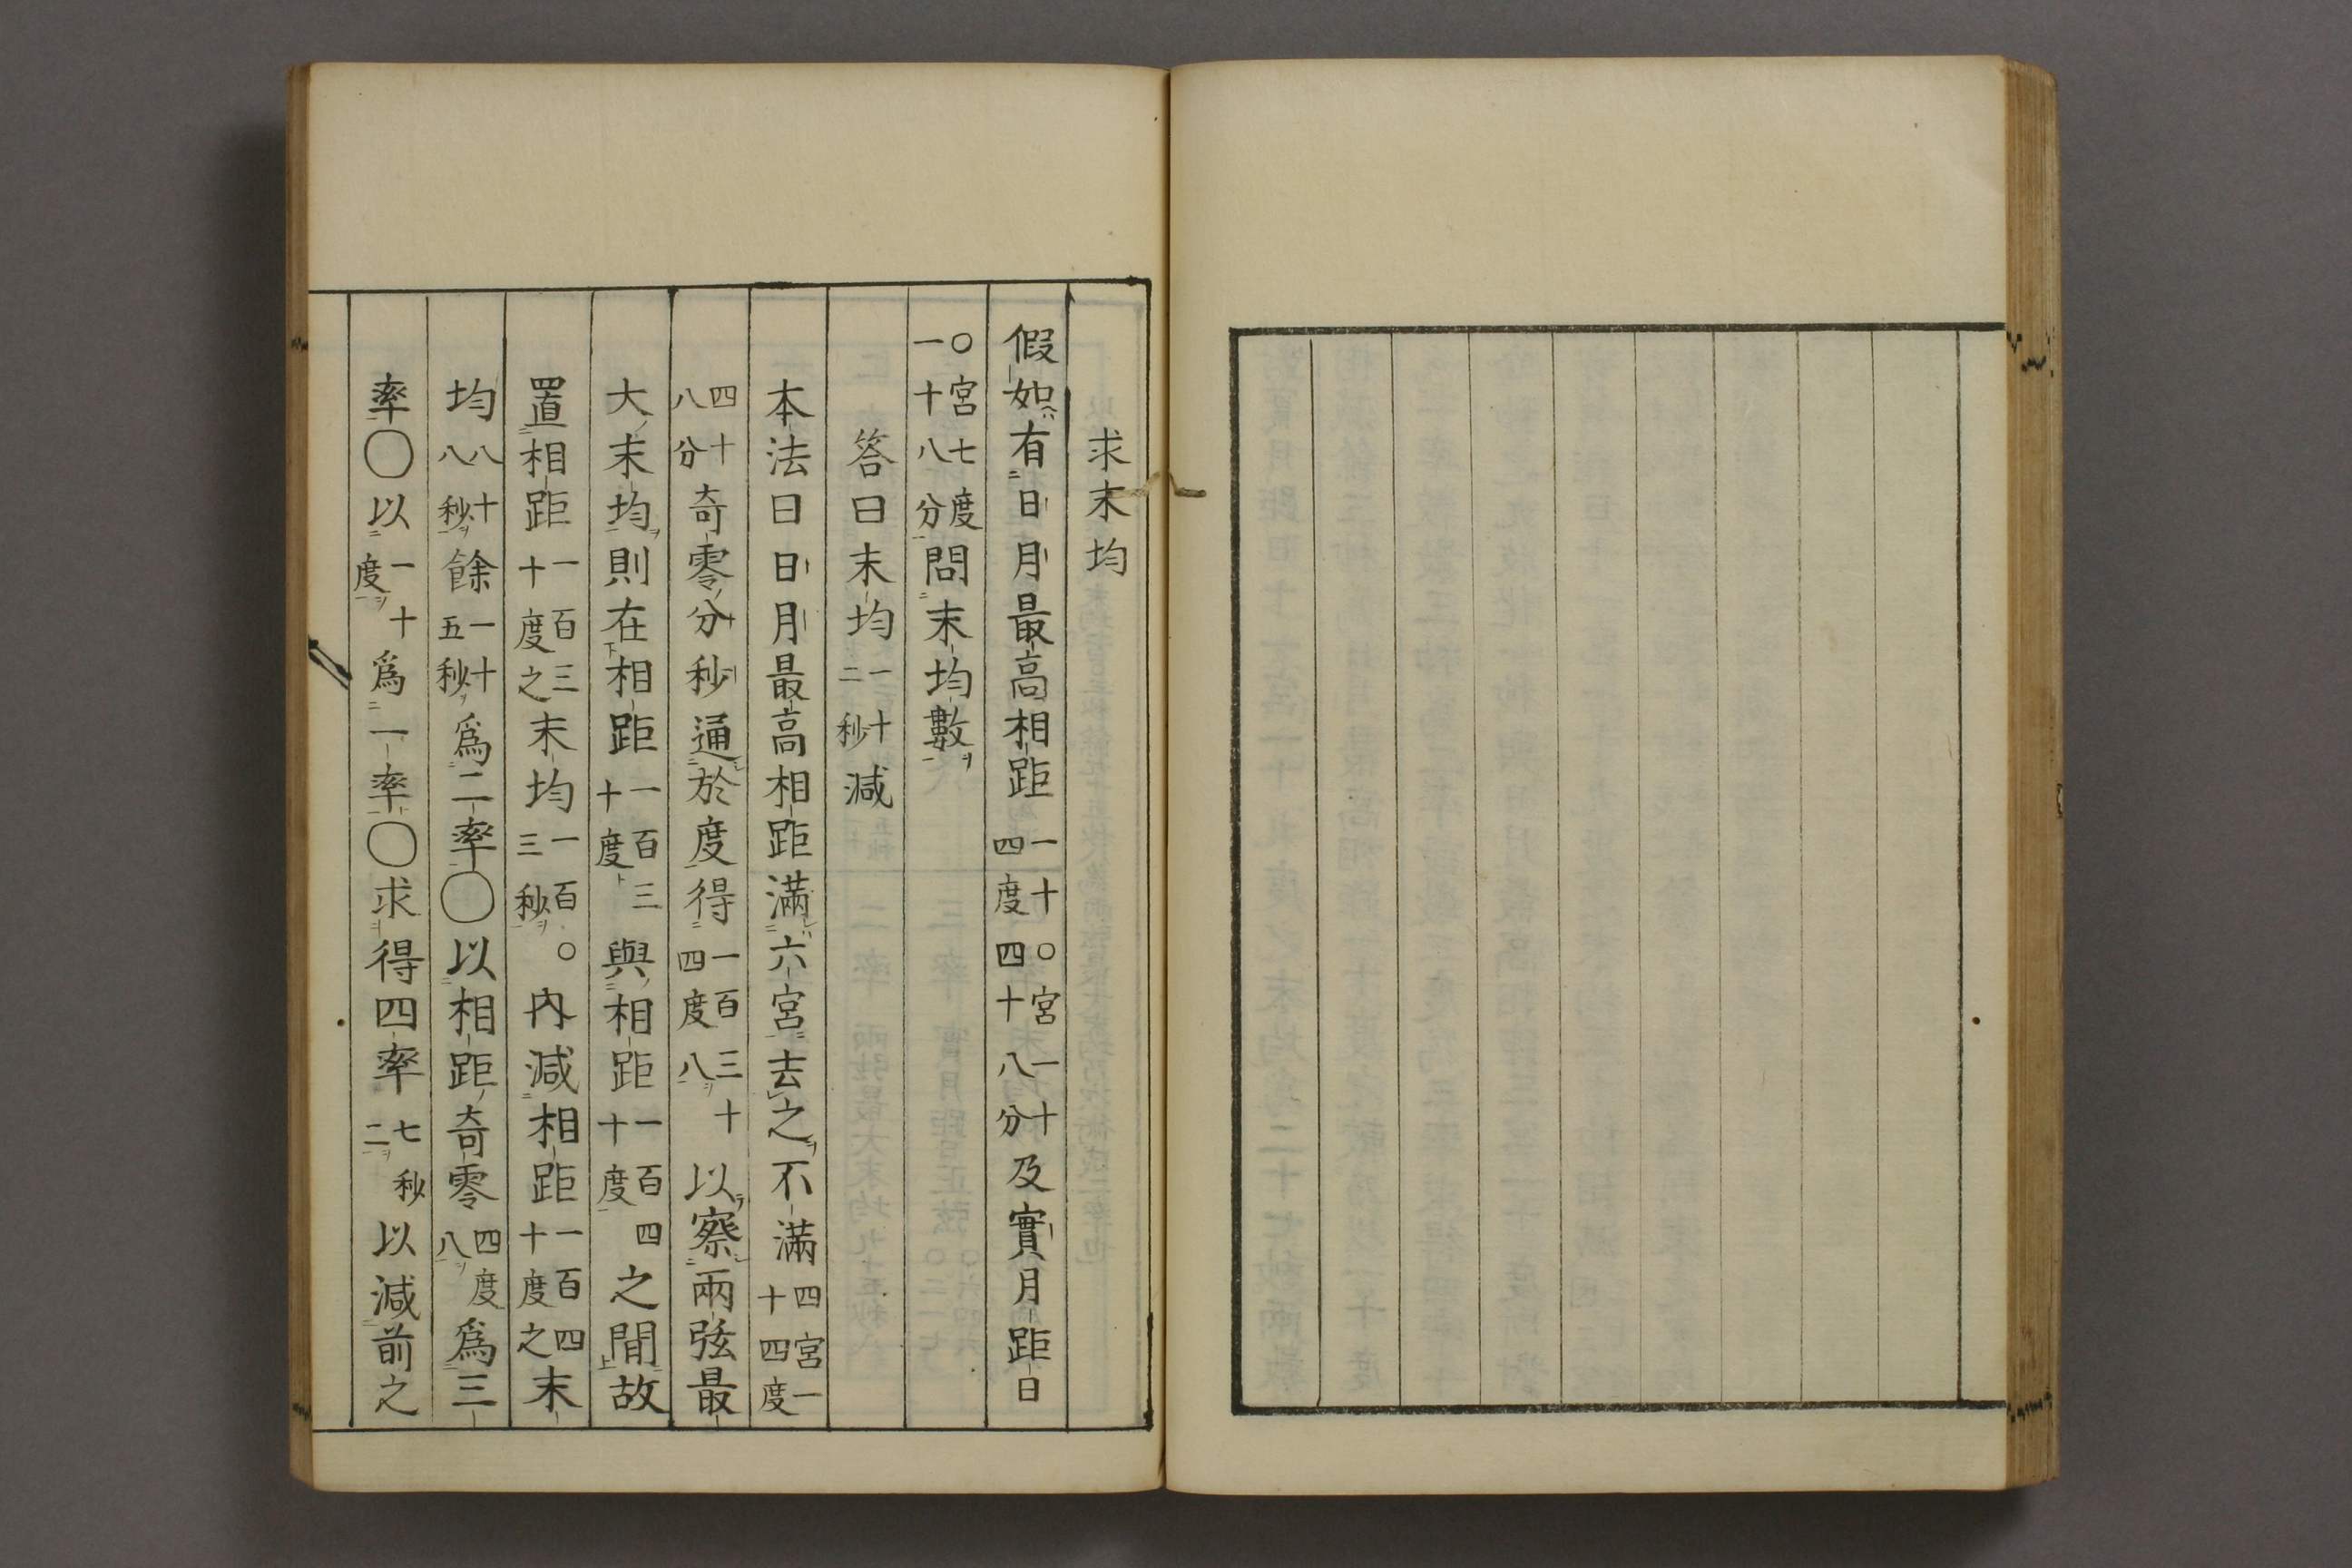 求末均
假如有日月最高相距一十〇宮一十四度四十八分及實月距日
〇宮七度一十八分問末均數
答曰末均一十二秒減
本法曰日月最高相距滿六宮去之不滿四宮一十四度
四十八分奇零分秒通於度得一百三十四度八以察兩弦最
大末均則在相距一百三十度與相距一百四十度之間故
置相距一百三十度之末均一百三秒〇內減相距一百四十度之末
均八十八秒餘一十五秒爲二率〇以相距奇零四度八爲三
率〇以一十度爲一率〇求得四率七秒二以減前之